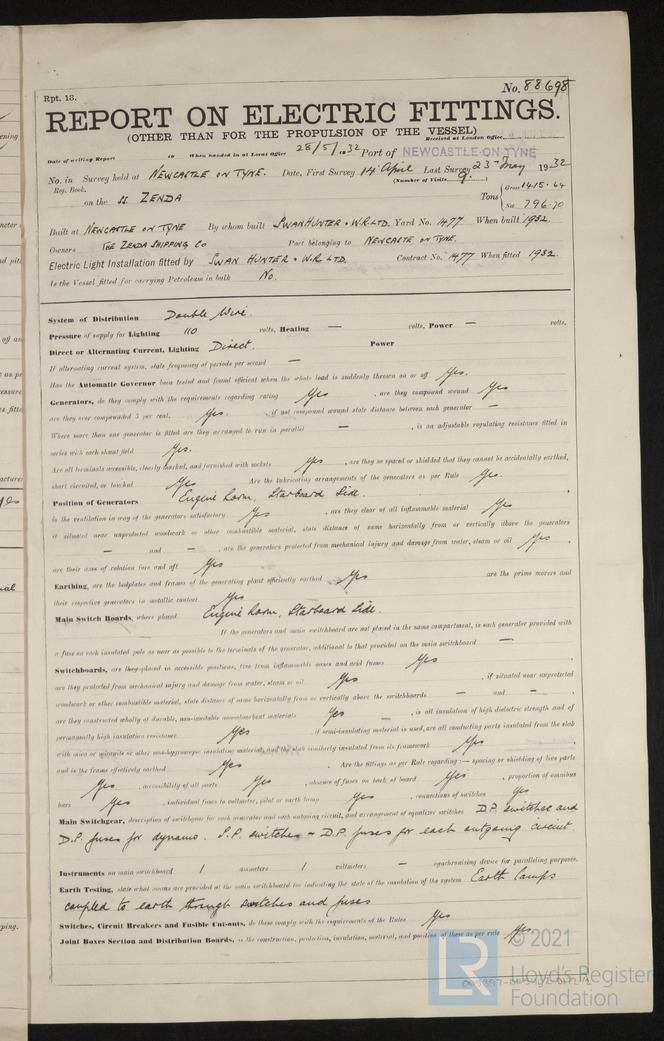 Rpt. 13.
No. 88698
REPORT ON ELECTRIC FITTINGS.
(OTHER THAN FOR THE PROPULSION OF THE VESSEL)
Received at London Office
Date of writing Report 19 When handed in at Local Office 28/5/1932 Port of NEWCASTLE-ON-TYNE
No. in Survey held at NEWCASTLE ON TYNE. Date, First Survey 14 April Last Survey 23rd May 1932
Reg. Book. (Number of Visits 9. )
on the SS ZENDA Tons { Gross 1415.64
Net 796.70
Built at NEWCASTLE ON TYNE By whom built SWAN HUNTER & W.R. LTD. Yard No. 1477 When built 1932.
Owners THE ZENDA SHIPPING CO Port belonging to NEWCASTLE ON TYNE.
Electric Light Installation fitted by SWAN HUNTER & W.R. LTD. Contract No. 1477 When fitted 1932.
Is the Vessel fitted for carrying Petroleum in bulk No.
System of Distribution Double Wire.
Pressure of supply for Lighting 110 volts, Heating — volts, Power — volts.
Direct or Alternating Current, Lighting Direct. Power
If alternating current system, state frequency of periods per second —
Has the Automatic Governor been tested and found efficient when the whole load is suddenly thrown on or off Yes.
Generators, do they comply with the requirements regarding rating Yes , are they compound wound Yes
are they over compounded 5 per cent. Yes. , if not compound wound state distance between each generator —
Where more than one generator is fitted are they arranged to run in parallel — , is an adjustable regulating resistance fitted in
series with each shunt field Yes.
Are all terminals accessible, clearly marked, and furnished with sockets Yes , are they so spaced or shielded that they cannot be accidentally earthed,
short circuited, or touched Yes Are the lubricating arrangements of the generators as per Rule Yes.
Position of Generators Engine Room, Starboard Side.
is the ventilation in way of the generators satisfactory Yes , are they clear of all inflammable material Yes
if situated near unprotected woodwork or other combustible material, state distance of same horizontally from or vertically above the generators
— and — , are the generators protected from mechanical injury and damage from water, steam or oil Yes ,
are their axes of rotation fore and aft Yes
Earthing, are the bedplates and frames of the generating plant efficiently earthed Yes are the prime movers and
their respective generators in metallic contact Yes
Main Switch Boards, where placed Engine Room, Starboard Side.
If the generators and main switchboard are not placed in the same compartment, is each generator provided with
a fuse on each insulated pole as near as possible to the terminals of the generator, additional to that provided on the main switchboard —
Switchboards, are they placed in accessible positions, free from inflammable gases and acid fumes Yes ,
are they protected from mechanical injury and damage from water, steam or oil Yes , if situated near unprotected
woodwork or other combustible material, state distance of same horizontally from or vertically above the switchboards — and — ,
are they constructed wholly of durable, non-ignitable non-absorbent materials Yes — , is all insulation of high dielectric strength and of
permanently high insulation resistance Yes , if semi-insulating material is used, are all conducting parts insulated from the slab
with mica or micanite or other non-hygroscopic insulating material, and the slab similarly insulated from its framework Yes ,
and is the frame effectively earthed Yes . Are the fittings as per Rule regarding:— spacing or shielding of live parts
Yes , accessibility of all parts Yes , absence of fuses on back of board Yes , proportion of omnibus
bars Yes , individual fuses to voltmeter, pilot or earth lamp Yes , connections of switches Yes
Main Switchgear, description of switchgear for each generator and each outgoing circuit, and arrangement of equalizer switches D.P. switches and
D.P. fuses for dynamo. S.P. switches & D.P. fuses for each outgoing circuit.
Instruments on main switchboard 1 ammeters 1 voltmeters — synchronising device for paralleling purposes.
Earth Testing, state what means are provided at the main switchboard for indicating the state of the insulation of the system Earth Lamps
coupled to earth through switches and fuses
Switches, Circuit Breakers and Fusible Cut-outs, do these comply with the requirements of the Rules Yes
Joint Boxes Section and Distribution Boards, is the construction, protection, insulation, material, and position of these as per rule Yes.
LR
© 2021
Lloyd's Register
Foundation